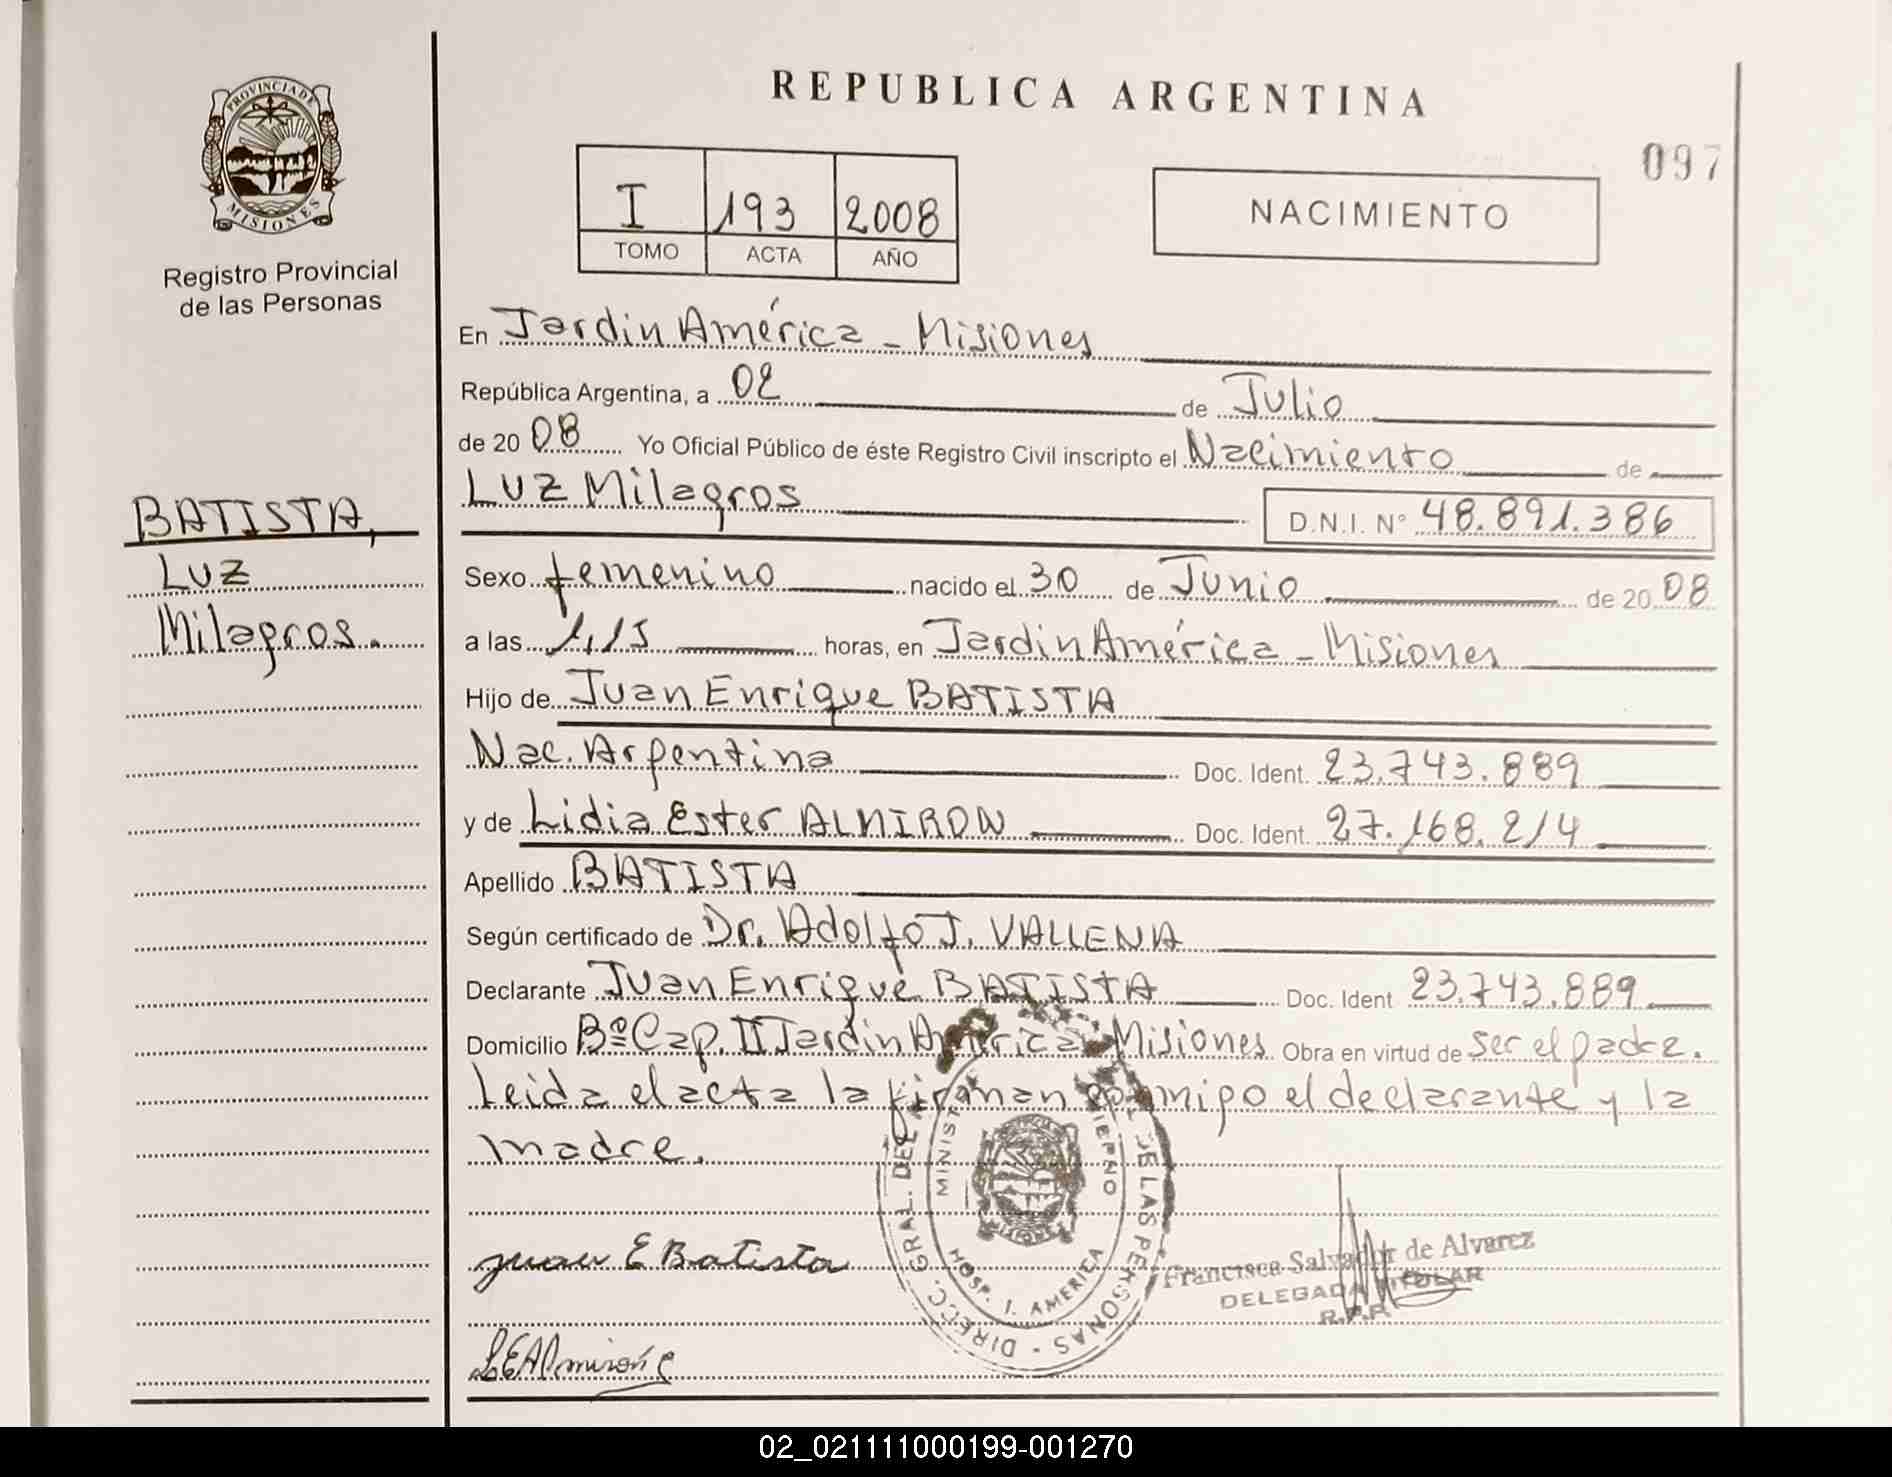 REPUBLICA ARGENTINA
097
PROVINCIA DE
MISIONES
Registro Provincial
de las Personas
I 193 2008
TOMO ACTA AÑO
NACIMIENTO
En Jardin América - Misiones
República Argentina, a 02 de Julio
de 20 08 Yo Oficial Público de éste Registro Civil inscripto el Nacimiento de
Luz Milagros D.N.I. Nº 48.891.386
BATISTA,
Luz
Milagros.
Sexo femenino nacido el 30 de Junio de 20 08
a las 1,15 horas, en Jardin América - Misiones
Hijo de Juan Enrique BATISTA
Nac. Argentina Doc. Ident. 23.743.889
y de Lidia Ester ALMIRON Doc. Ident. 27.168.214
Apellido BATISTA
Según certificado de Dr. Adolfo J. VALLENA
Declarante Juan Enrique BATISTA Doc. Ident 23.743.889
Domicilio Bº Cap. II Jardin América - Misiones Obra en virtud de ser el padre.
Leida el acta la firman conmigo el declarante y la
madre.
Juan E Batista
DIRECC. GRAL. DEL DE LAS PERSONAS
HOSP. J. AMERICA
Francisca Salvador de Alvarez
DELEGADA TITULAR
R.P.P.
02_021111000199-001270